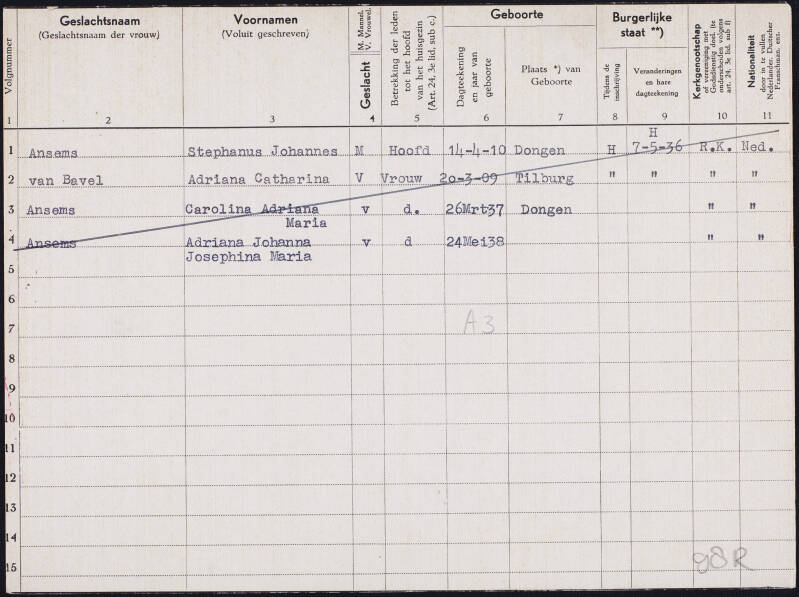 Volgnummer
Geslachtsnaam
(Geslachtsnaam der vrouw)
Voornamen
(Voluit geschreven)
Geslacht
M. Mannel.
V. Vrouwel.
Betrekking der leden
tot het hoofd
van het huisgezin
(Art. 24, 3e lid, sub c.)
Geboorte
Dagteekening
en jaar van
geboorte
Plaats *) van
Geboorte
Burgerlijke
staat **)
Tijdens de
inschrijving
Veranderingen
en hare
dagteekening
Kerkgenootschap
of vereeniging met
Godsdienstig doel. (te
onderscheiden volgens
art. 24, 3e lid, sub f)
Nationaliteit
door in te vullen
Nederlander, Duitscher
Franschman, enz.
1 2 3 4 5 6 7 8 9 10 11
H
1 Ansems Stephanus Johannes M Hoofd 14-4-10 Dongen H 7-5-36 R.K. Ned.
2 van Bavel Adriana Catharina V Vrouw 20-3-09 Tilburg " " " "
3 Ansems Carolina Adriana v d. 26Mrt37 Dongen " "
Maria
4 Ansems Adriana Johanna v d 24Mei38 " "
Josephina Maria
5
6
7 A3
8
9
10
11
12
13
14
98R
15